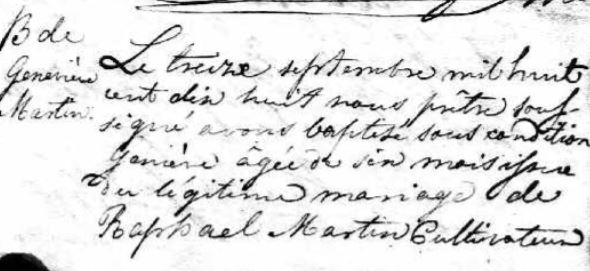 B de
Genevière
Martin.
Le treize septembre mil huit
cent dix huit nous prêtre sous-
signé avons baptisé sous condition
Genière âgée de six mois issue
du légitime mariage de
Raphael Martin Cultivateur